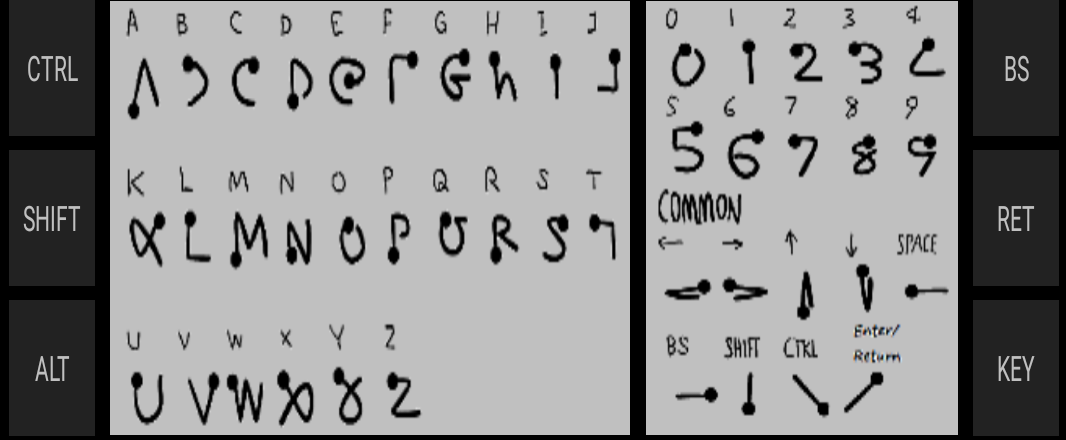 CTRL
SHIFT
ALT
A B C D E F G H I J
K L M N O P Q R S T
U V W X Y Z
0 1 2 3 4
5 6 7 8 9
COMMON
← → ↑ ↓ SPACE
BS SHIFT CTRL Enter/
Return
BS
RET
KEY